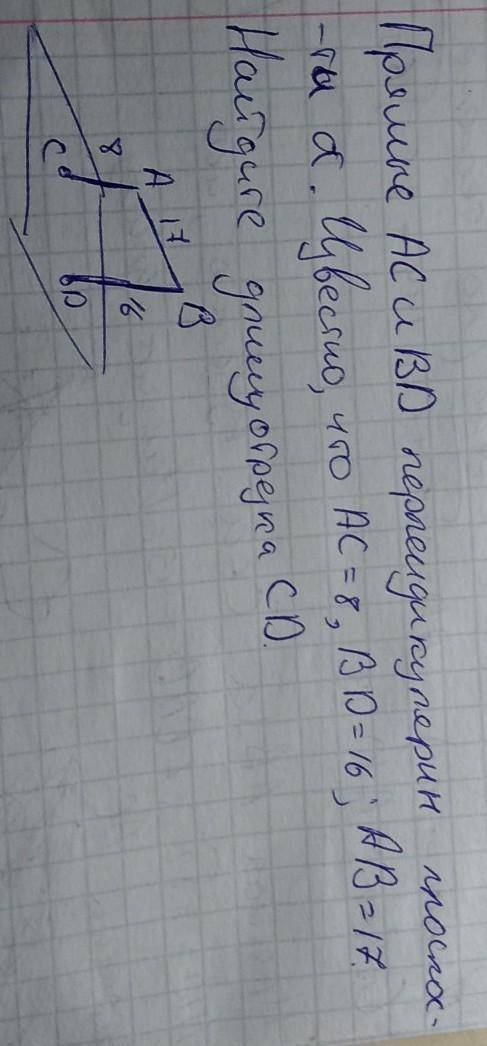 Прямые AC и BD перпендикулярни плоскос-
-ты α. Известно, что AC = 8, BD = 16; AB = 17.
Найдите длину отрезка CD.
A
B
17
8
16
C
D